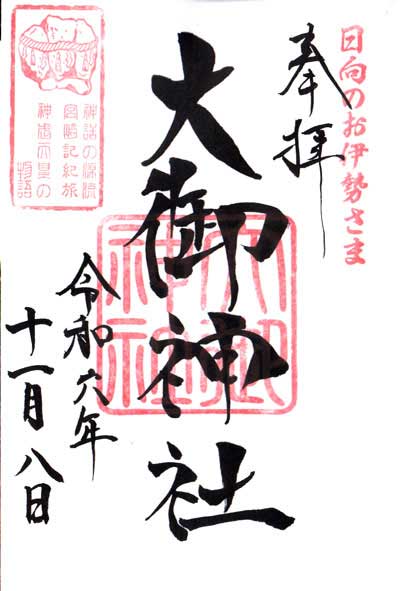 日向のお伊勢さま
奉拝
大御神社
大御
神社
令和六年
十一月八日
神話の源流
宮崎記紀旅
神武天皇の
物語